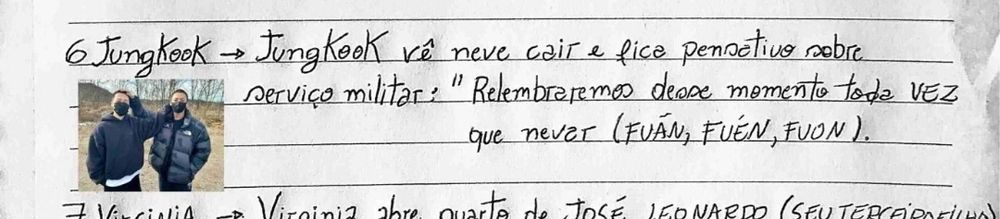 6 JungKook → JungKook vê neve cair e fica pensativo sobre
serviço militar: "Relembraremos desse momento toda VEZ
que nevar (FUÁN, FUÉN, FUON).
7 VIRGINIA → Virginia abre quarto de JOSÉ LEONARDO (SEU TERCEIRO FILHO)